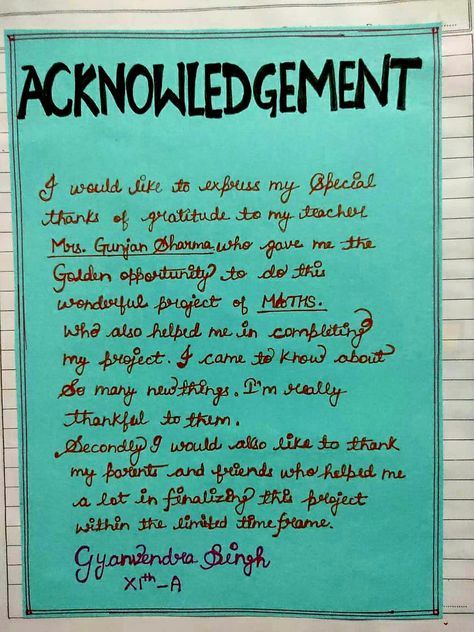 ACKNOWLEDGEMENT
I would like to express my Special
thanks of gratitude to my teacher
Mrs. Gunjan Sharma who gave me the
Golden opportunity to do this
wonderful project of MATHS.
Who also helped me in completing
my project. I came to know about
So many new things. I'm really
thankful to them.
Secondly I would also like to thank
my parents and friends who helped me
a lot in finalizing this project
within the limited time frame.
Gyanvendra Singh
XIth-A